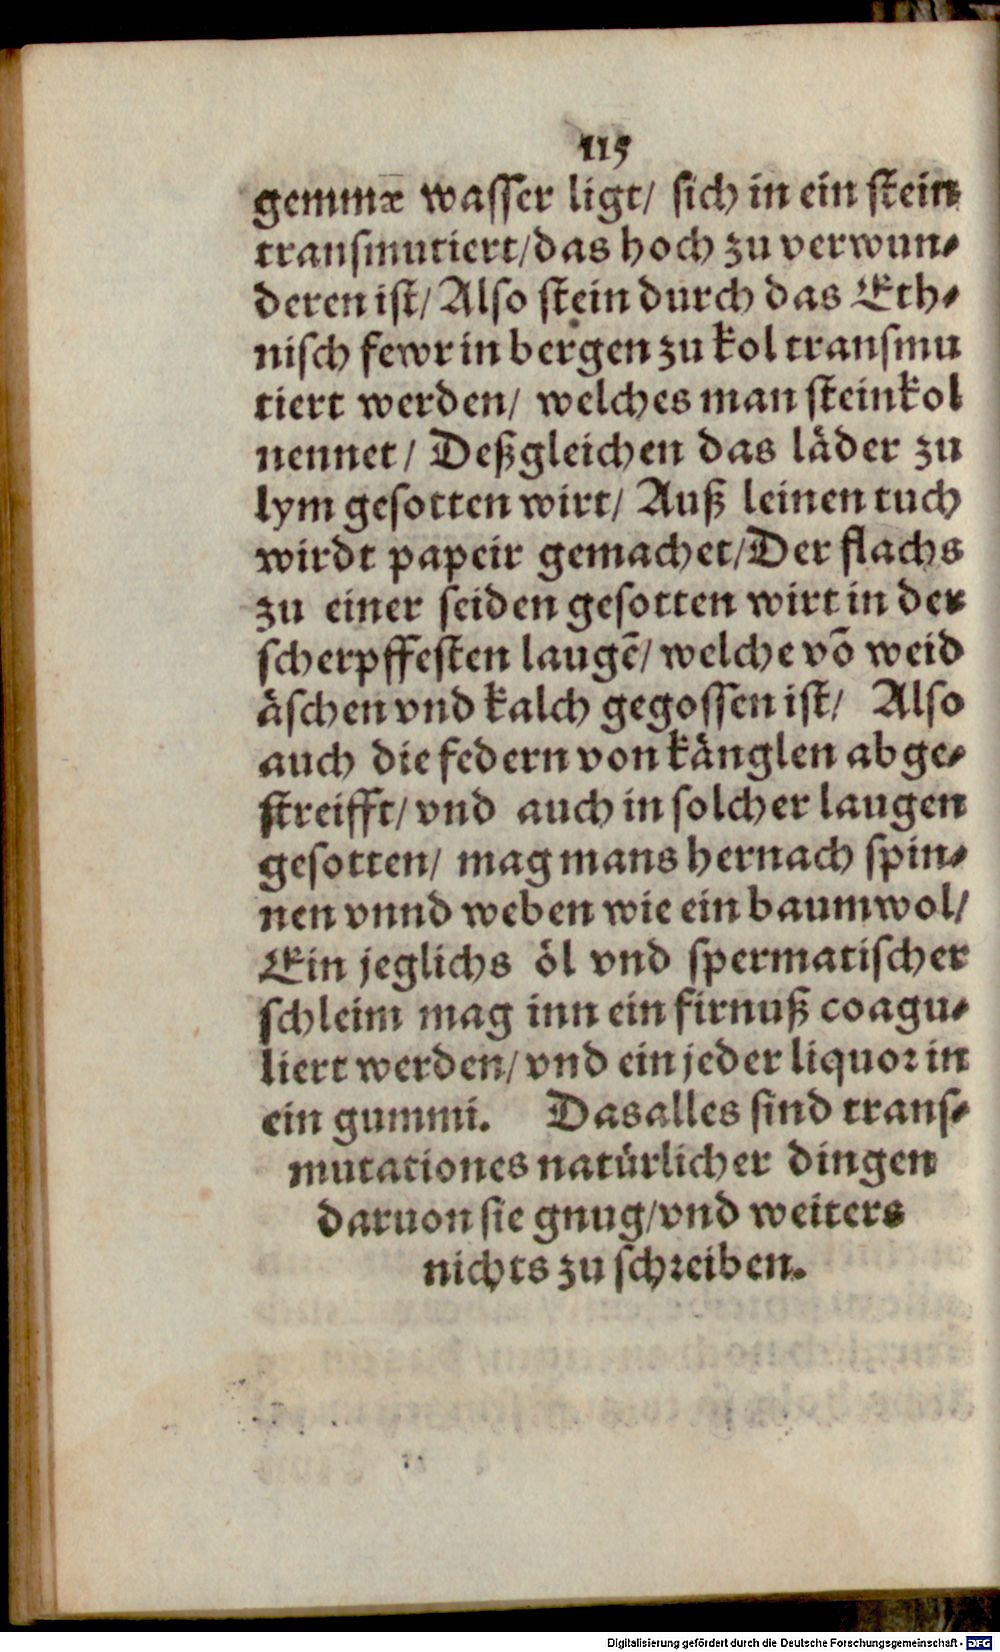 115
gemmæ wasser ligt/ sich in ein stein
transmutiert/das hoch zu verwun⸗
deren ist/ Also stein durch das Eth⸗
nisch fewr in bergen zu kol transmu
tiert werden/ welches man steinkol
nennet/ Deßgleichen das läder zu
lym gesotten wirt/ Auß leinen tuch
wirdt papeir gemachet/Der flachs
zu einer seiden gesotten wirt in der
scherpffesten laugē/ welche vō weid
äschen vnd kalch gegossen ist/ Also
auch die federn von känglen abge⸗
streifft/ vnd auch in solcher laugen
gesotten/ mag mans hernach spin⸗
nen vnnd weben wie ein baumwol/
Ein jeglichs öl vnd spermatischer
schleim mag inn ein firnuß coagu⸗
liert werden/ vnd ein jeder liquor in
ein gummi. Das alles sind trans⸗
mutationes natürlicher dingen
daruon sie gnug/vnd weiters
nichts zu schreiben.
Digitalisierung gefördert durch die Deutsche Forschungsgemeinschaft - DFG